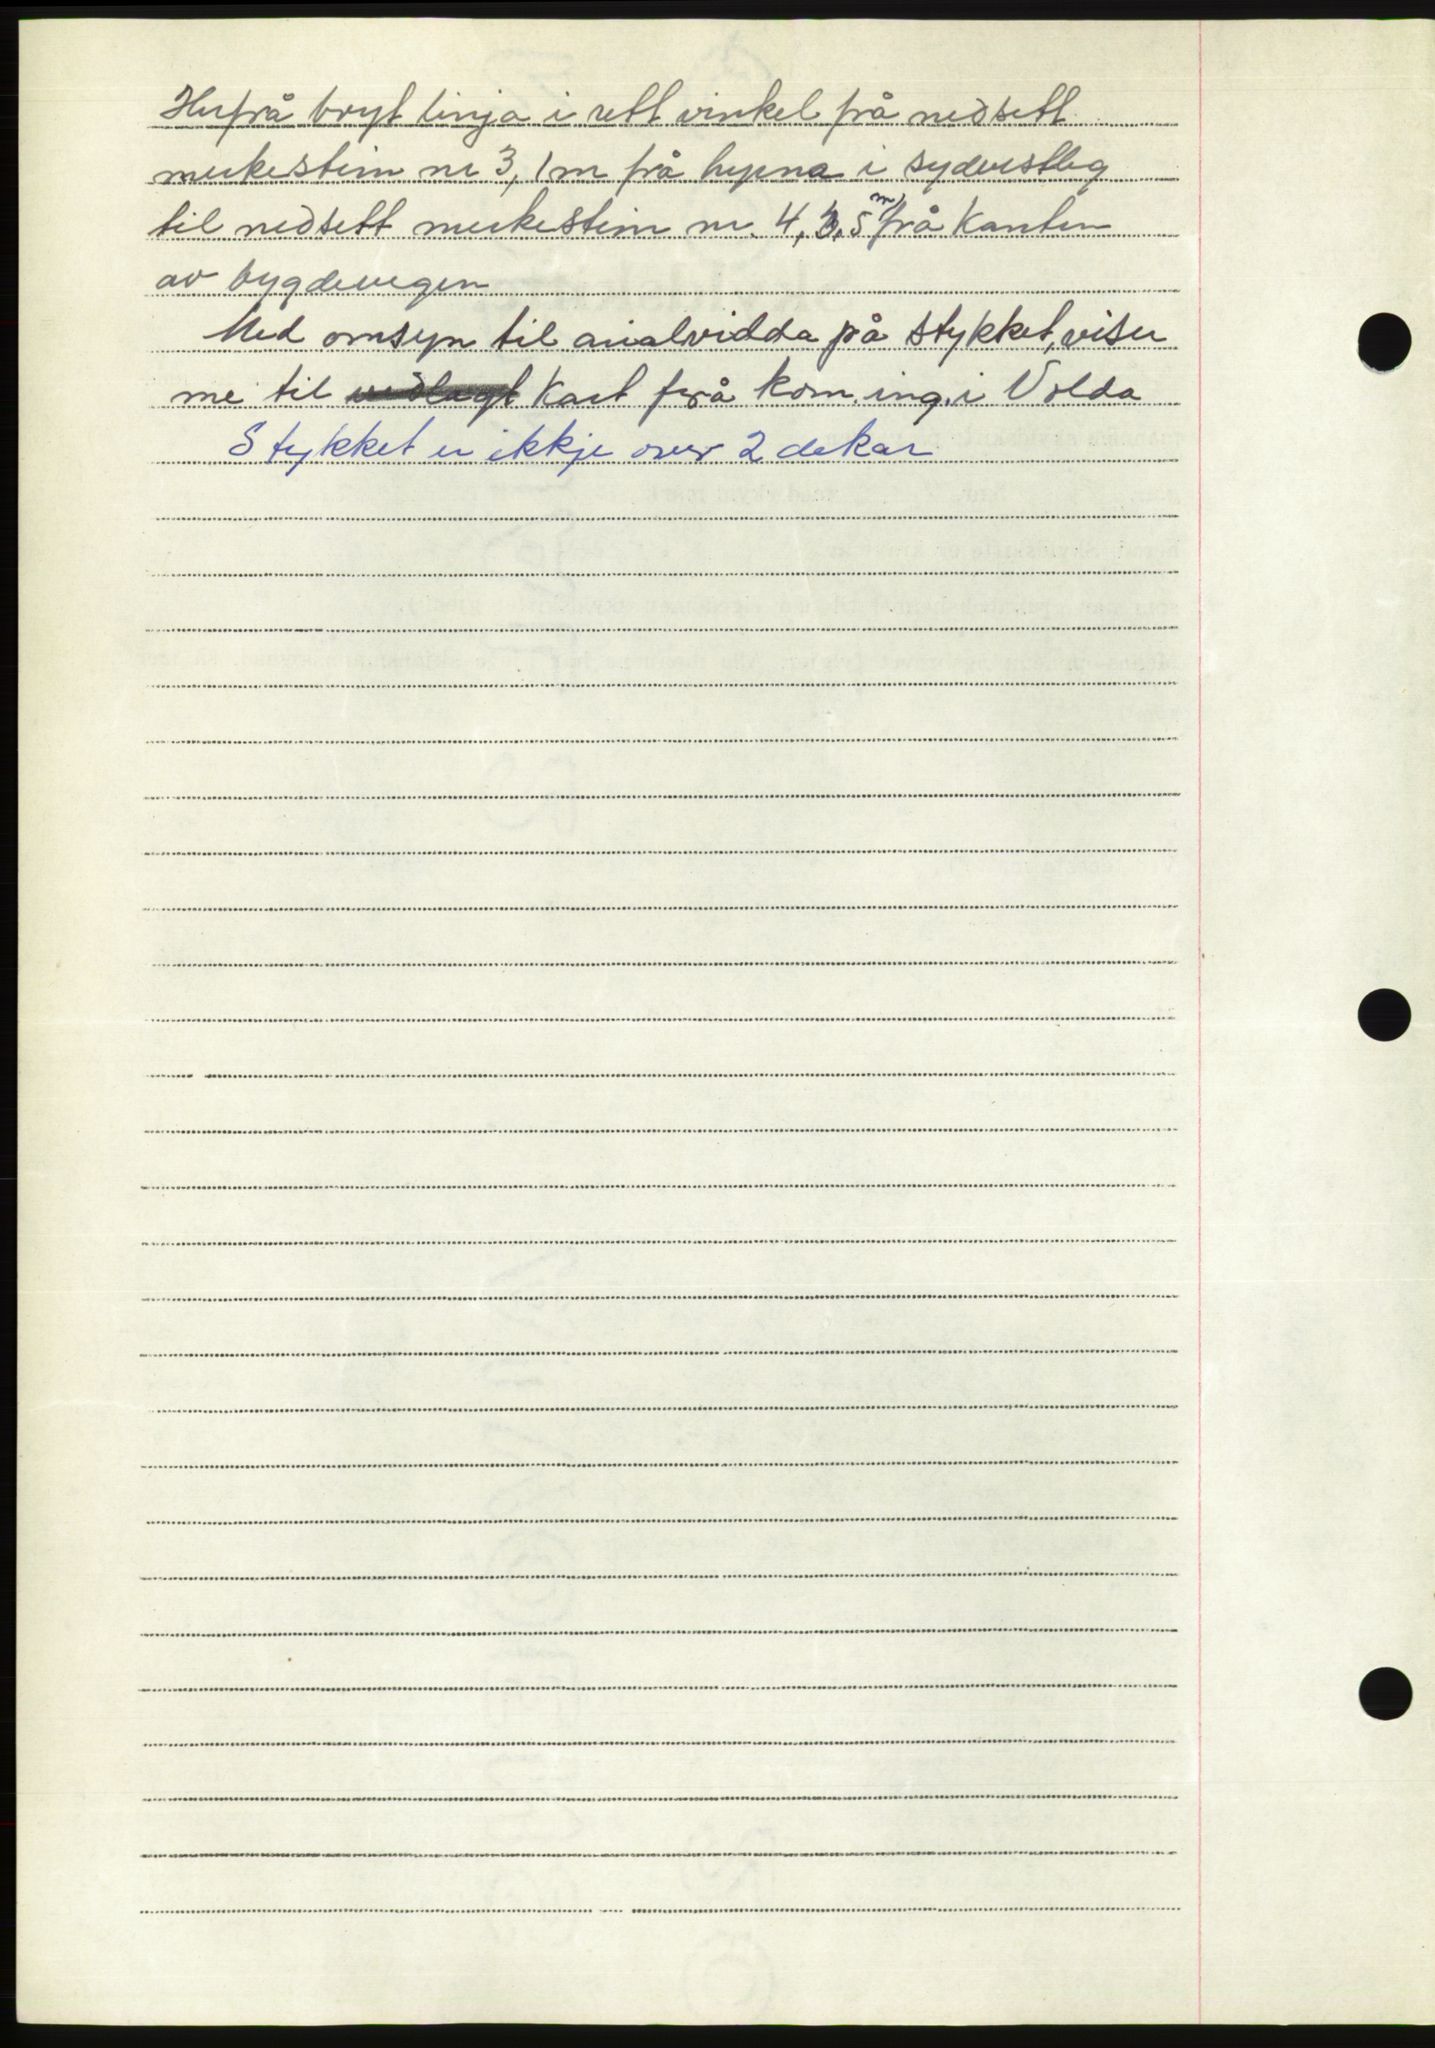 Herfrå bryt linja i rett vinkel frå nedsett
merkestein nr 3, 1m frå hyrna i sydvestleg
til nedsett merkestein nr. 4, 3,5 m frå kanten
av bygdevegen
Med omsyn til arialvidda på stykket, viser
me til vedlagt kart frå kom. ing. i Volda
Stykket er ikkje over 2 dekar